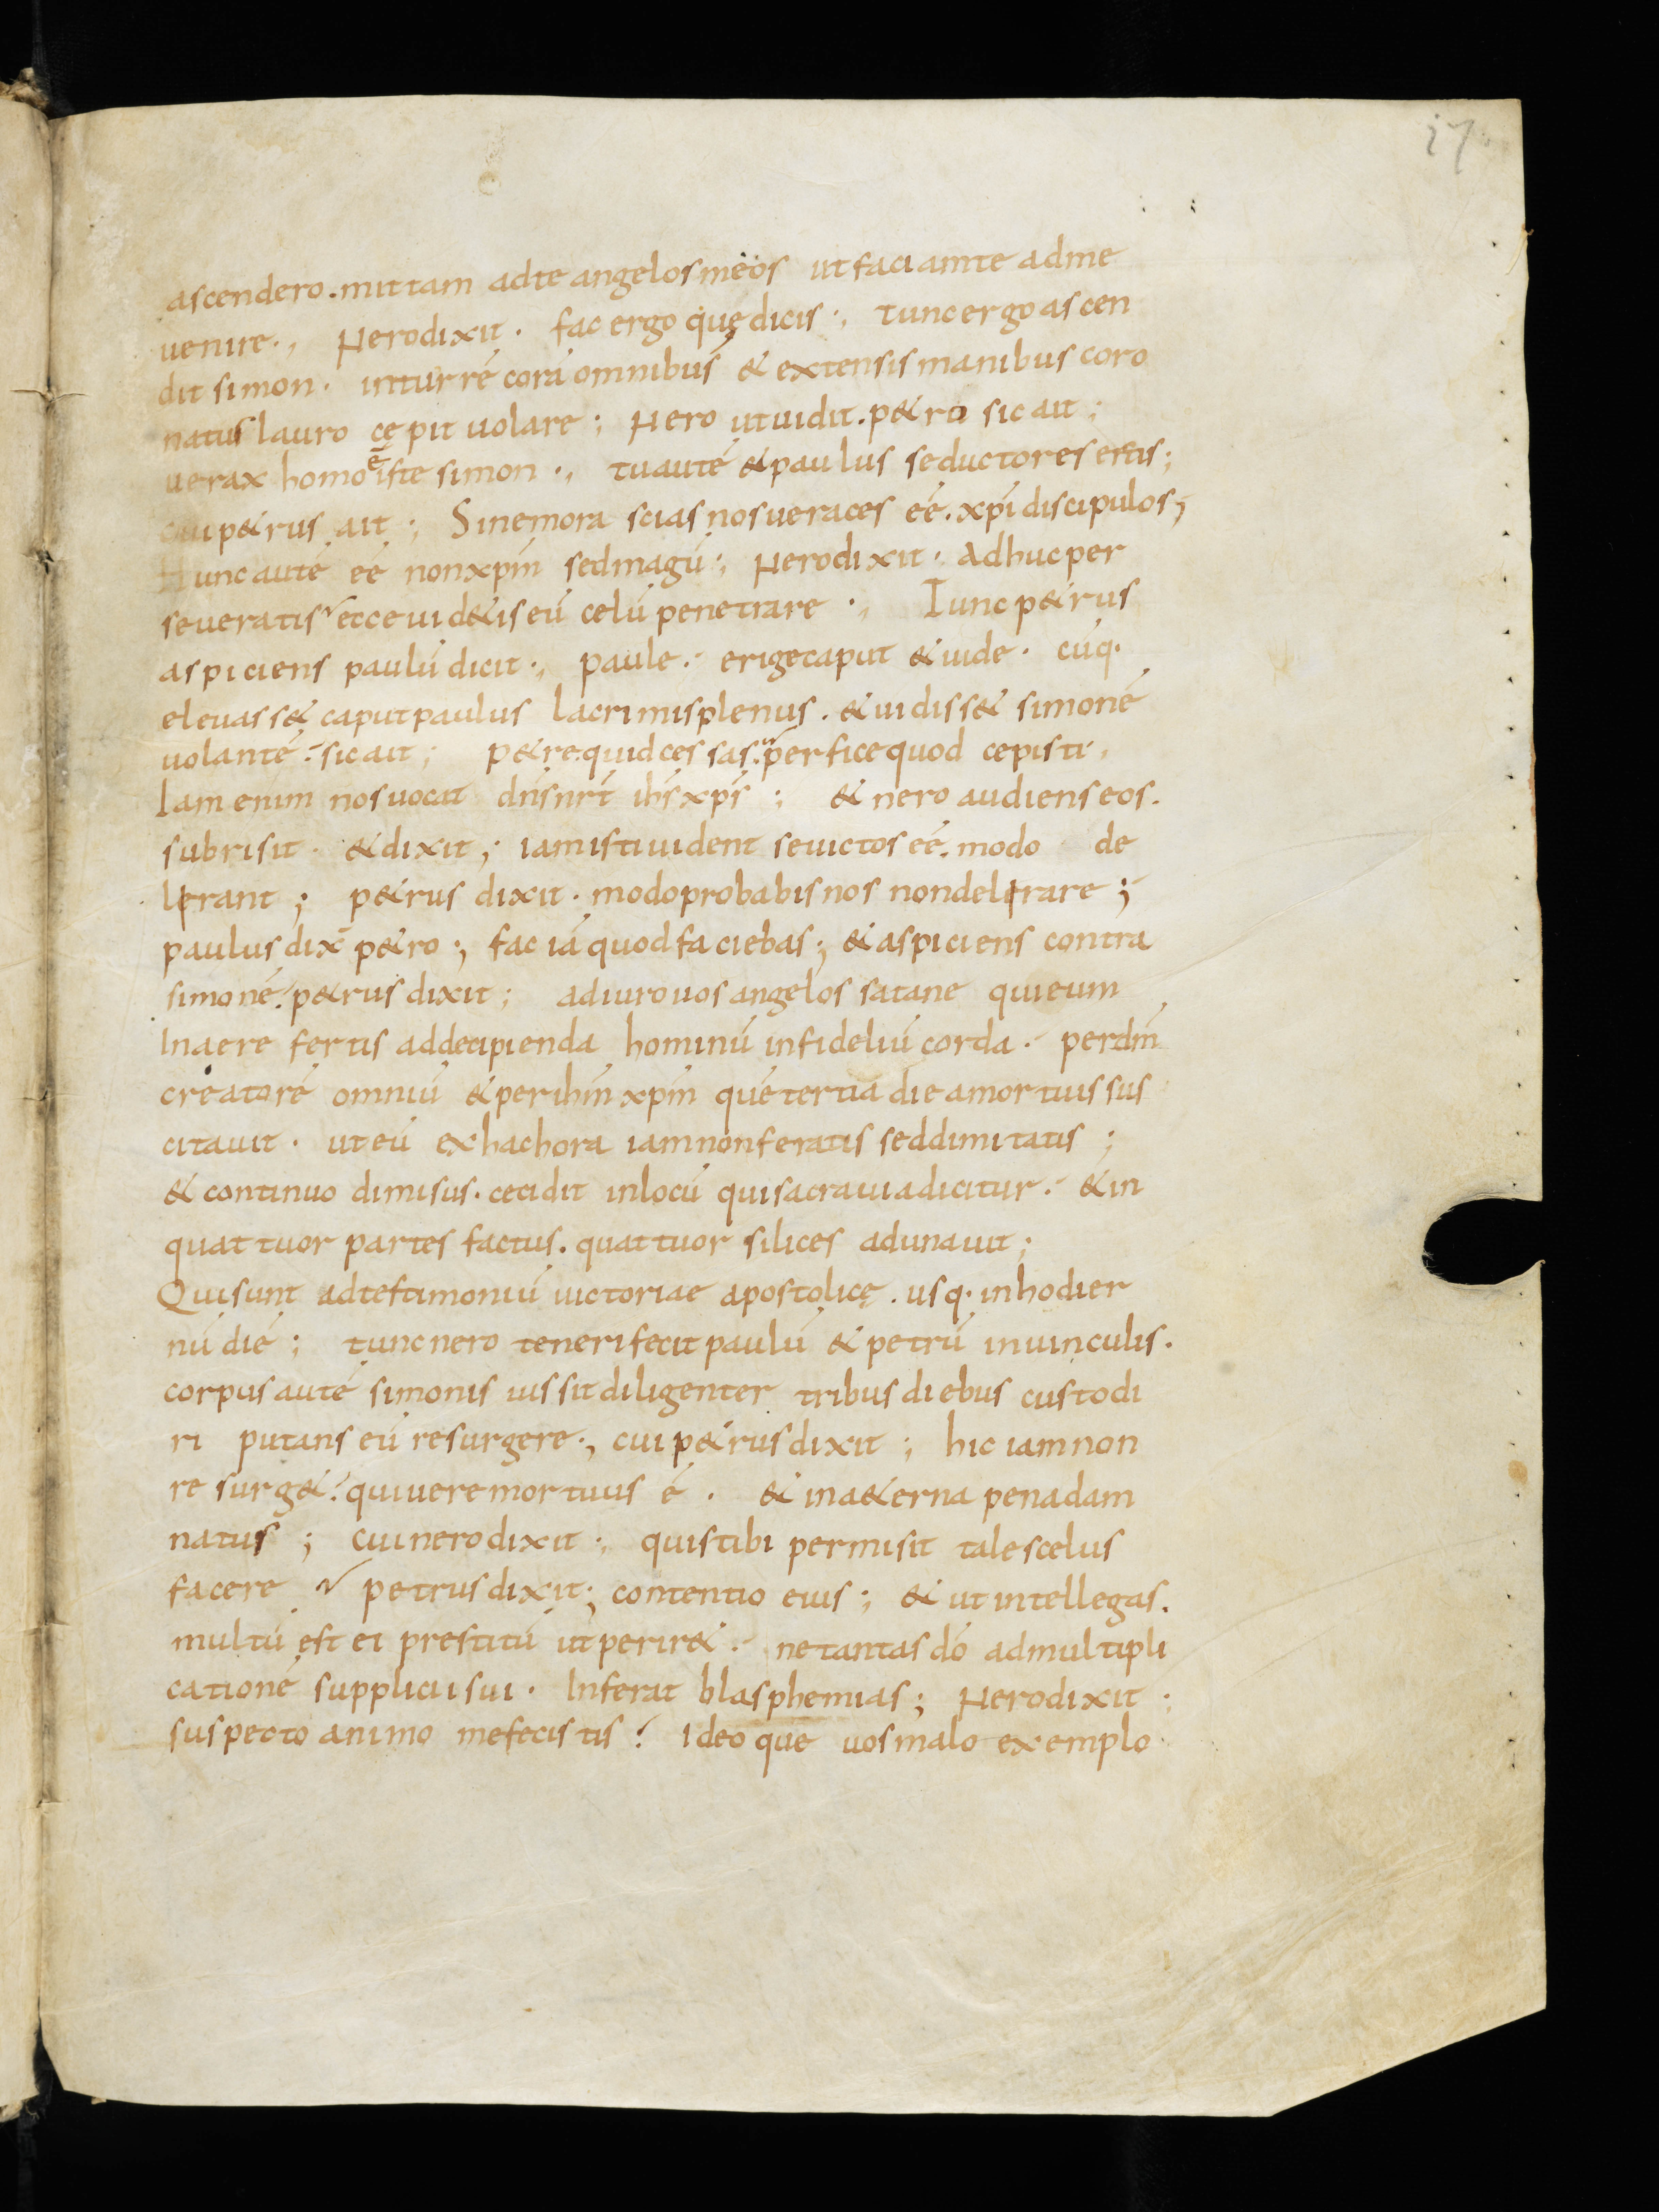 17
ascendero. mittam adte angelosmeos utfaciamte adme
uenire., Nerodixit. fac ergo quę dicis., tuncergo ascen
dit simon. inturrē corā omnibus & extensis manibus coro
natus lauro cępit uolare; Nero ut uidit. p&ro sic ait;
uerax homo ē iste simon., tu autē & paulus seductores estis;
cui p&rus ait; Sine mora scias nos ueraces eē. xpi discipulos;
Hunc autē eē non xpm sed magū., Nero dixit. Adhuc per
seueratis etce uid&is eū celū penetrare., Tunc p&rus
aspiciens paulū dicit., paule. erige caput & uide. cūq.
eleuass& caput paulus lacrimis plenus. & uidiss& simonē
uolantē. sic ait; P&re. quid cessas. perfice quod cepisti.
Iam enim nos uocat dns nr ihs xps; & nero audiens eos.
subrisit. & dixit; iam isti uident se uictos eē. modo de
lerant; p&rus dixit. modo probabis nos non delerare;
paulus dix̄ p&ro; fac iā quod faciebas; & aspiciens contra
simonē. p&rus dixit; adiuro uos angelos satane qui eum
In aere fertis ad decipienda hominū infideliū corda. per dm̄
creatorē omniū & per ihm xpm quē tertia die a mortuis sus
citauit. ut eū ex hac hora iam non feratis sed dimitatis;
& continuo dimisus. cecidit in locū qui sacra uia dicitur. & in
quattuor partes factus. quattuor silices adunauit;
Qui sunt ad testimoniū uictoriae apostolicę. usq. in hodier
nū diē; tunc nero teneri fecit paulū & petrū in uinculis.
corpus autē simonis iussit diligenter tribus diebus custodi
ri putans eū resurgere., cui p&rus dixit; hic iam non
resurg&. qui uere mortuus ē. & in a&erna pena dam
natus; cui nero dixit., quis tibi permisit tale scelus
facere petrus dixit; contentio eius; & ut intellegas.
multū est ei prestitū ut perir&. ne tantas dō ad multipli
cationē supplicii sui. Inferat blasphemias; Nero dixit.
suspecto animo me fecistis. Ideoque uos malo exemplo